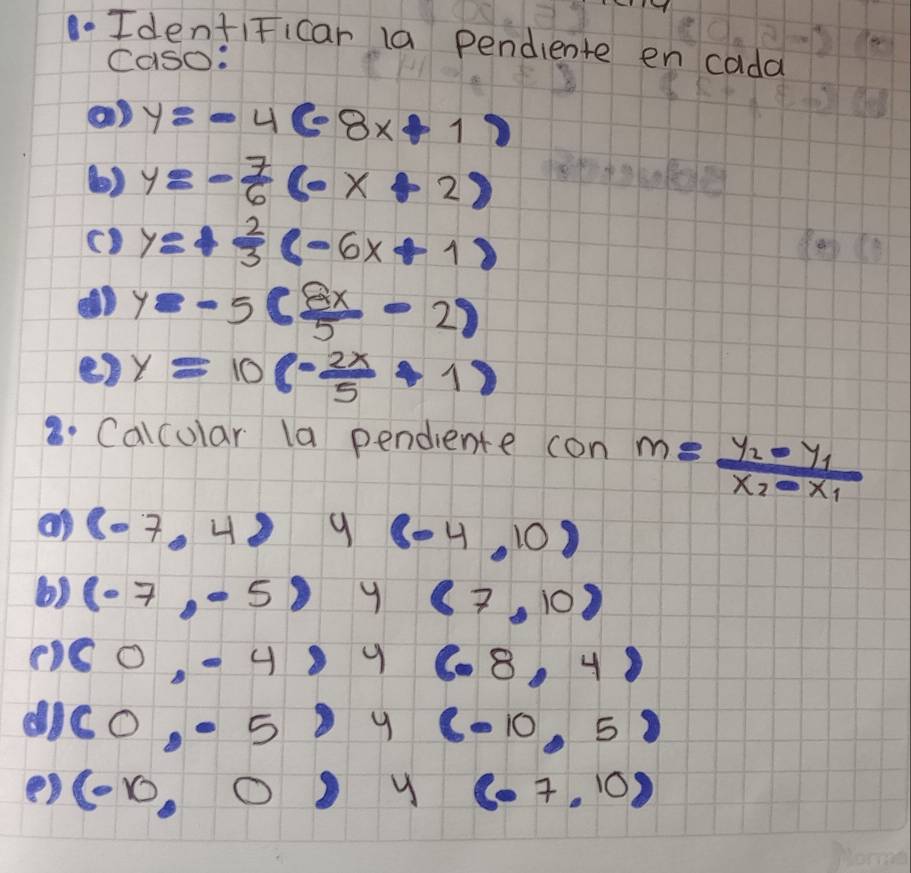 1. Identificar la pendiente en cada
caso:
a) y = - 4 (-8x + 1)
b) y = - 7/6 (- x + 2)
c) y = + 2/3 (-6x + 1)
d) y = - 5 (8x/5 - 2)
e) y = 10 (-2x/5 + 1)
2. Calcular la pendiente con m = y₂ - y₁ / x₂ - x₁
a) (-7, 4) y (-4, 10)
b) (-7, -5) y (7, 10)
c) (0, -4) y (-8, 4)
d) (0, -5) y (-10, 5)
e) (-10, 0) y (-7, 10)
Norma